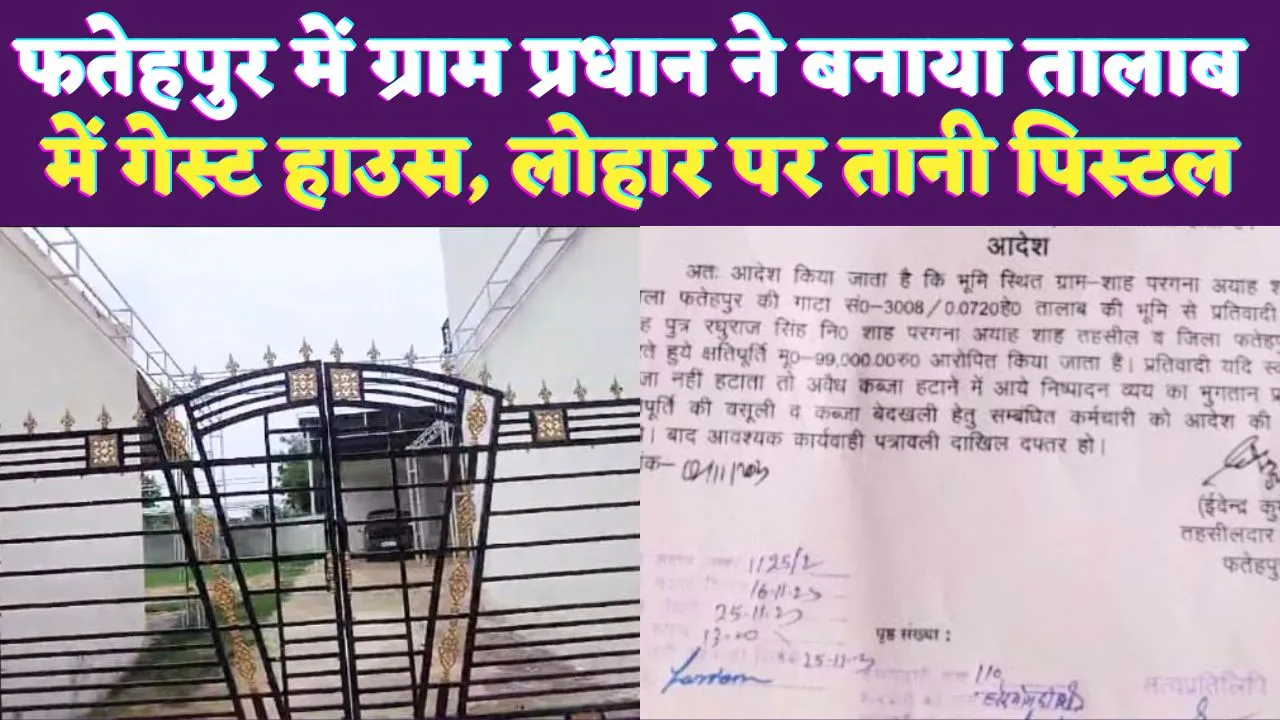 फतेहपुर में ग्राम प्रधान ने बनाया तालाब
में गेस्ट हाउस, लोहार पर तानी पिस्टल
आदेश
अतः आदेश किया जाता है कि भूमि स्थित ग्राम-शाह परगना अयाह श
ला फतेहपुर की गाटा सं0-3008/0.0720हे0 तालाब की भूमि से प्रतिवादी
ह पुत्र रघुराज सिंह नि0 शाह परगना अयाह शाह तहसील व जिला फतेहपु
ते हुये क्षतिपूर्ति मू0-99,000.00रु0 आरोपित किया जाता है। प्रतिवादी यदि स्व
जा नहीं हटाता तो अवैध कब्जा हटाने में आये निष्पादन व्यय का भुगतान प्र
पूर्ति की वसूली व कब्जा बेदखली हेतु सम्बंधित कर्मचारी को आदेश की
। बाद आवश्यक कार्यवाही पत्रावली दाखिल दफ्तर हो।
ंक-
(ईवेन्द्र कु
तहसीलदार
फतेहपु
1125/2
16-11-23
25-11-23
13-00
पृष्ठ संख्या :
25-11-23
110
सत्यप्रतिलिपि